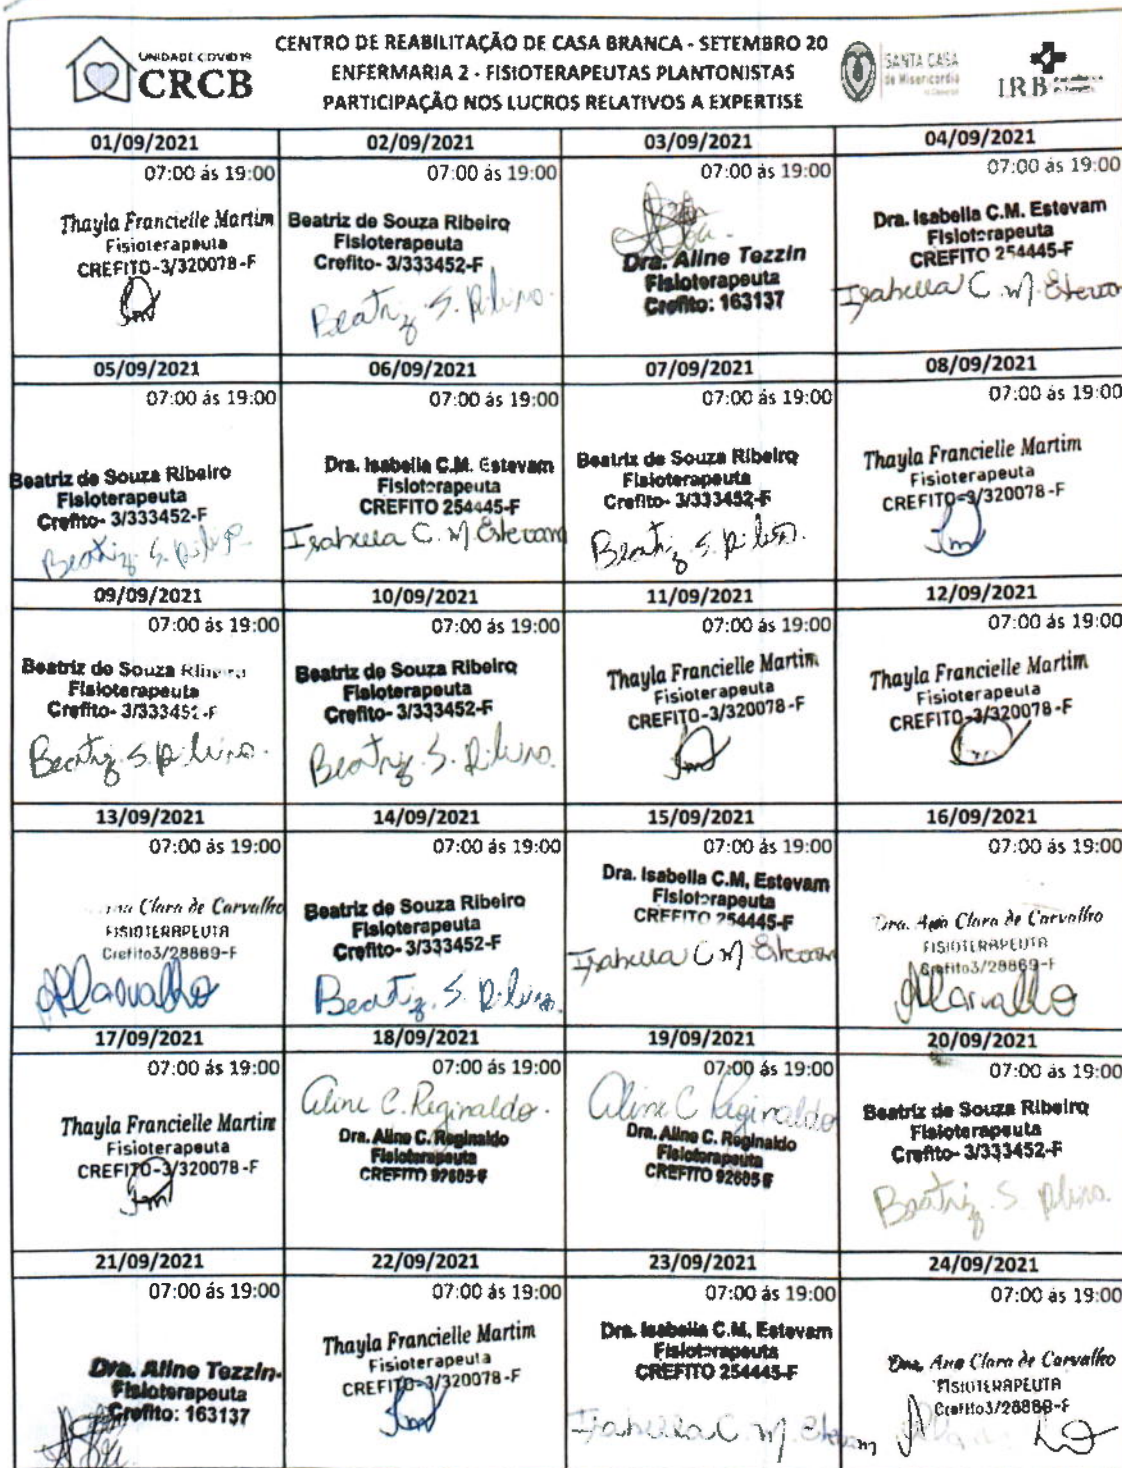 UNIDADE COVID19
CRCB
CENTRO DE REABILITAÇÃO DE CASA BRANCA - SETEMBRO 20
ENFERMARIA 2 - FISIOTERAPEUTAS PLANTONISTAS
PARTICIPAÇÃO NOS LUCROS RELATIVOS A EXPERTISE
SANTA CASA
de Misericordia
IRB
01/09/2021 02/09/2021 03/09/2021 04/09/2021
07:00 ás 19:00 07:00 ás 19:00 07:00 ás 19:00 07:00 ás 19:00
Thayla Francielle Martim
Fisioterapeuta
CREFITO-3/320078-F
Beatriz de Souza Ribeiro
Fisioterapeuta
Crefito- 3/333452-F
Beatriz S. Ribeiro
Dra. Aline Tezzin
Fisioterapeuta
Crefito: 163137
Dra. Isabella C.M. Estevam
Fisioterapeuta
CREFITO 254445-F
Isabella C. M. Estevam
05/09/2021 06/09/2021 07/09/2021 08/09/2021
07:00 ás 19:00 07:00 ás 19:00 07:00 ás 19:00 07:00 ás 19:00
Beatriz de Souza Ribeiro
Fisioterapeuta
Crefito- 3/333452-F
Beatriz S. Ribeiro
Dra. Isabella C.M. Estevam
Fisioterapeuta
CREFITO 254445-F
Isabella C. M Estevam
Beatriz de Souza Ribeiro
Fisioterapeuta
Crefito- 3/333452-F
Beatriz S. Ribeiro.
Thayla Francielle Martim
Fisioterapeuta
CREFITO-3/320078-F
09/09/2021 10/09/2021 11/09/2021 12/09/2021
07:00 ás 19:00 07:00 ás 19:00 07:00 ás 19:00 07:00 ás 19:00
Beatriz de Souza Ribeiro
Fisioterapeuta
Crefito- 3/333452-F
Beatriz S. Ribeiro.
Beatriz de Souza Ribeiro
Fisioterapeuta
Crefito- 3/333452-F
Beatriz S. Ribeiro.
Thayla Francielle Martim
Fisioterapeuta
CREFITO-3/320078-F
Thayla Francielle Martim
Fisioterapeuta
CREFITO-3/320078-F
13/09/2021 14/09/2021 15/09/2021 16/09/2021
07:00 ás 19:00 07:00 ás 19:00 07:00 ás 19:00 07:00 ás 19:00
Clara de Carvalho
FISIOTERAPEUTA
Crefito3/28869-F
ACarvalho
Beatriz de Souza Ribeiro
Fisioterapeuta
Crefito- 3/333452-F
Beatriz S. Ribeiro.
Dra. Isabella C.M. Estevam
Fisioterapeuta
CREFITO 254445-F
Isabella C M Estevam
Dra. Ana Clara de Carvalho
FISIOTERAPEUTA
Crefito3/28869-F
ACarvalho
17/09/2021 18/09/2021 19/09/2021 20/09/2021
07:00 ás 19:00 07:00 ás 19:00 07:00 ás 19:00 07:00 ás 19:00
Thayla Francielle Martim
Fisioterapeuta
CREFITO-3/320078-F
Aline C. Reginaldo.
Dra. Aline C. Reginaldo
Fisioterapeuta
CREFITO 92605-F
Aline C Reginaldo
Dra. Aline C. Reginaldo
Fisioterapeuta
CREFITO 92605 F
Beatriz de Souza Ribeiro
Fisioterapeuta
Crefito- 3/333452-F
Beatriz S. Ribeiro.
21/09/2021 22/09/2021 23/09/2021 24/09/2021
07:00 ás 19:00 07:00 ás 19:00 07:00 ás 19:00 07:00 ás 19:00
Dra. Aline Tezzin
Fisioterapeuta
Crefito: 163137
Thayla Francielle Martim
Fisioterapeuta
CREFITO-3/320078-F
Dra. Isabella C.M. Estevam
Fisioterapeuta
CREFITO 254445-F
Isabella C. M. Estevam
Dra. Ana Clara de Carvalho
FISIOTERAPEUTA
Crefito3/28869-F